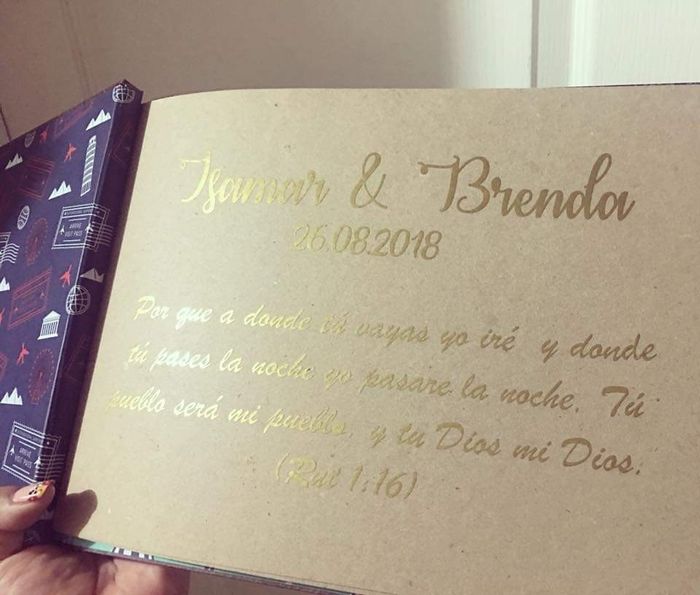 Isamar & Brenda
26.08.2018
Por que a donde tú vayas yo iré y donde
tú pases la noche yo pasare la noche. Tú
pueblo será mi pueblo, y tu Dios mi Dios.
(Rut 1:16)
ARRIVE
VISIT PASS
ARRIVE
VISIT PASS